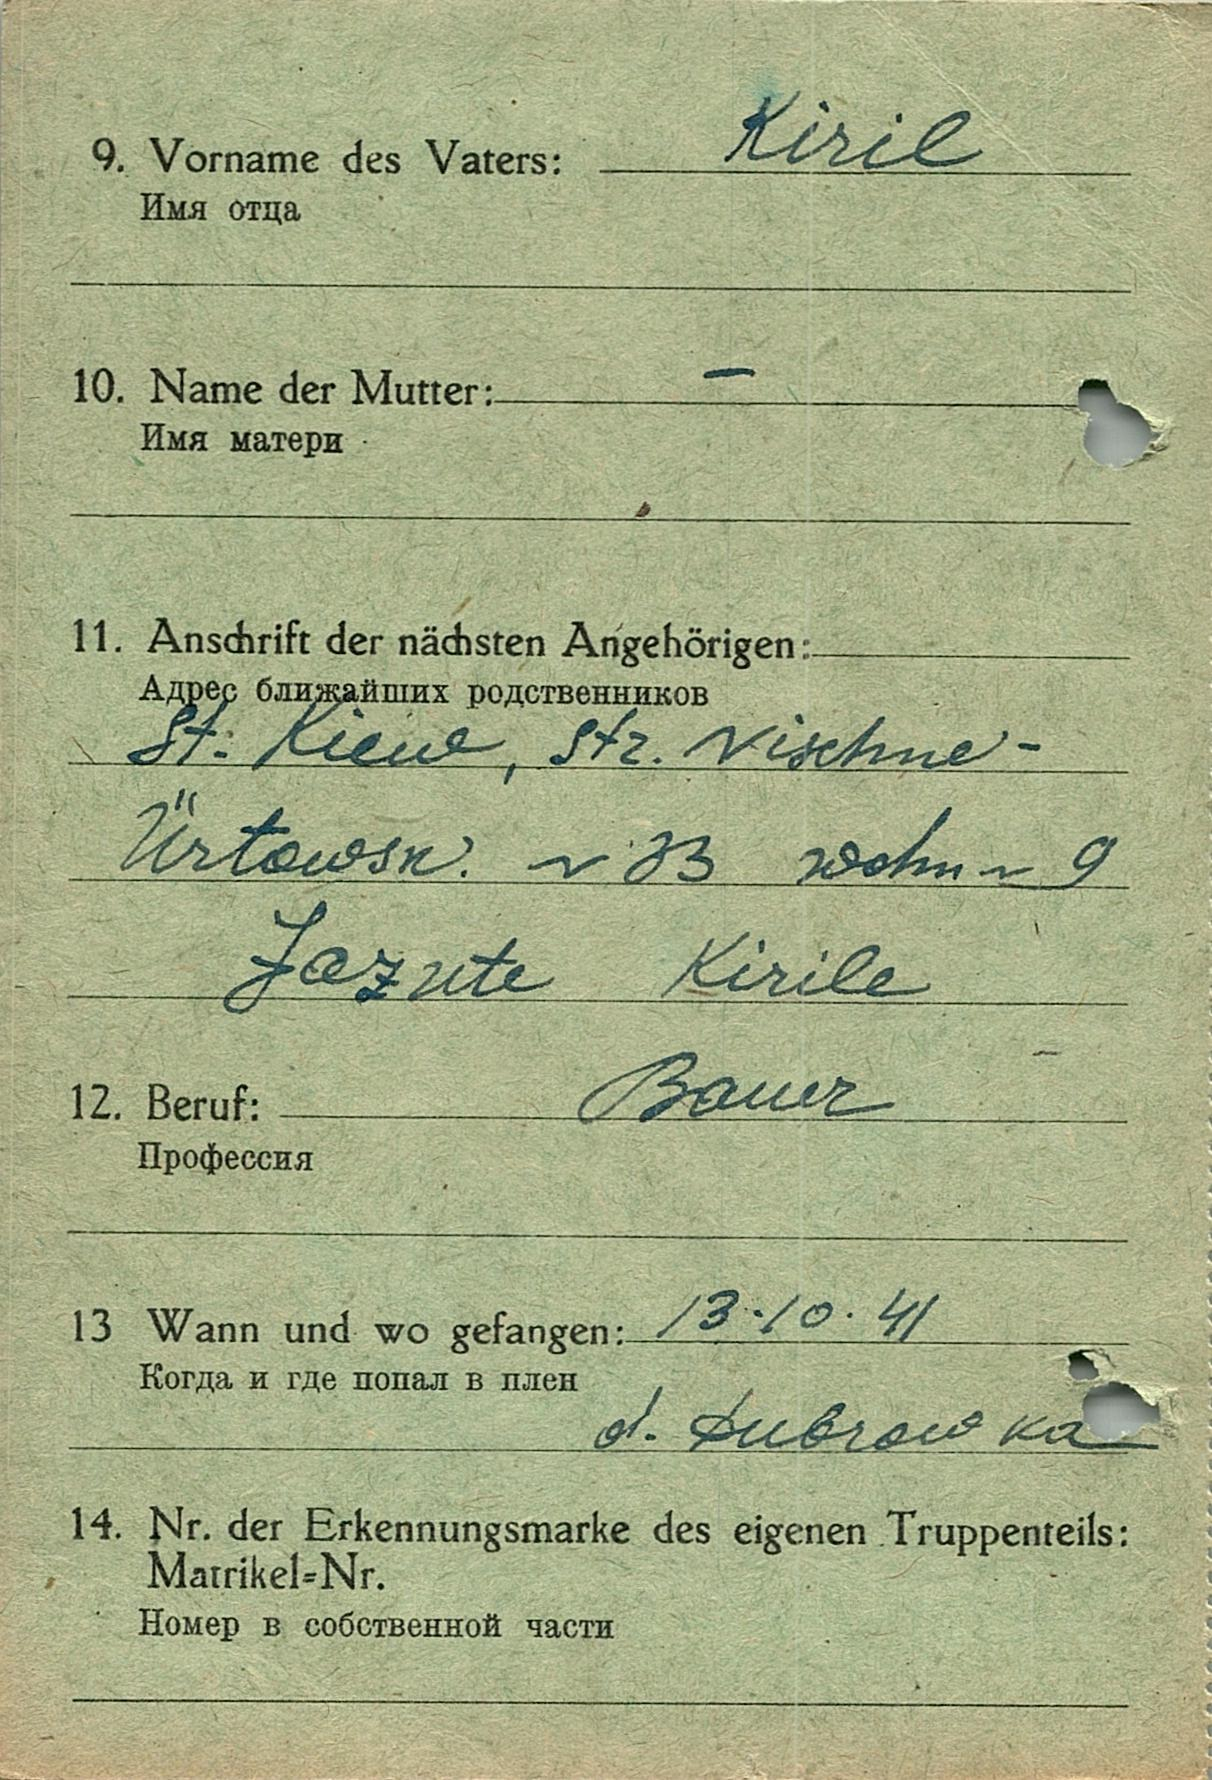 9. Vorname des Vaters: Kiril
Имя отца
10. Name der Mutter: –
Имя матери
11. Anschrift der nächsten Angehörigen:
Адрес ближайших родственников
St. Kiew, Str. Nischne-
Ürtowsk. N 33 wohn N 9
Jazute Kirile
12. Beruf: Bauer
Профессия
13 Wann und wo gefangen: 13.10.41
Когда и где попал в плен
d. Dubrowka
14. Nr. der Erkennungsmarke des eigenen Truppenteils:
Matrikel=Nr.
Номер в собственной части